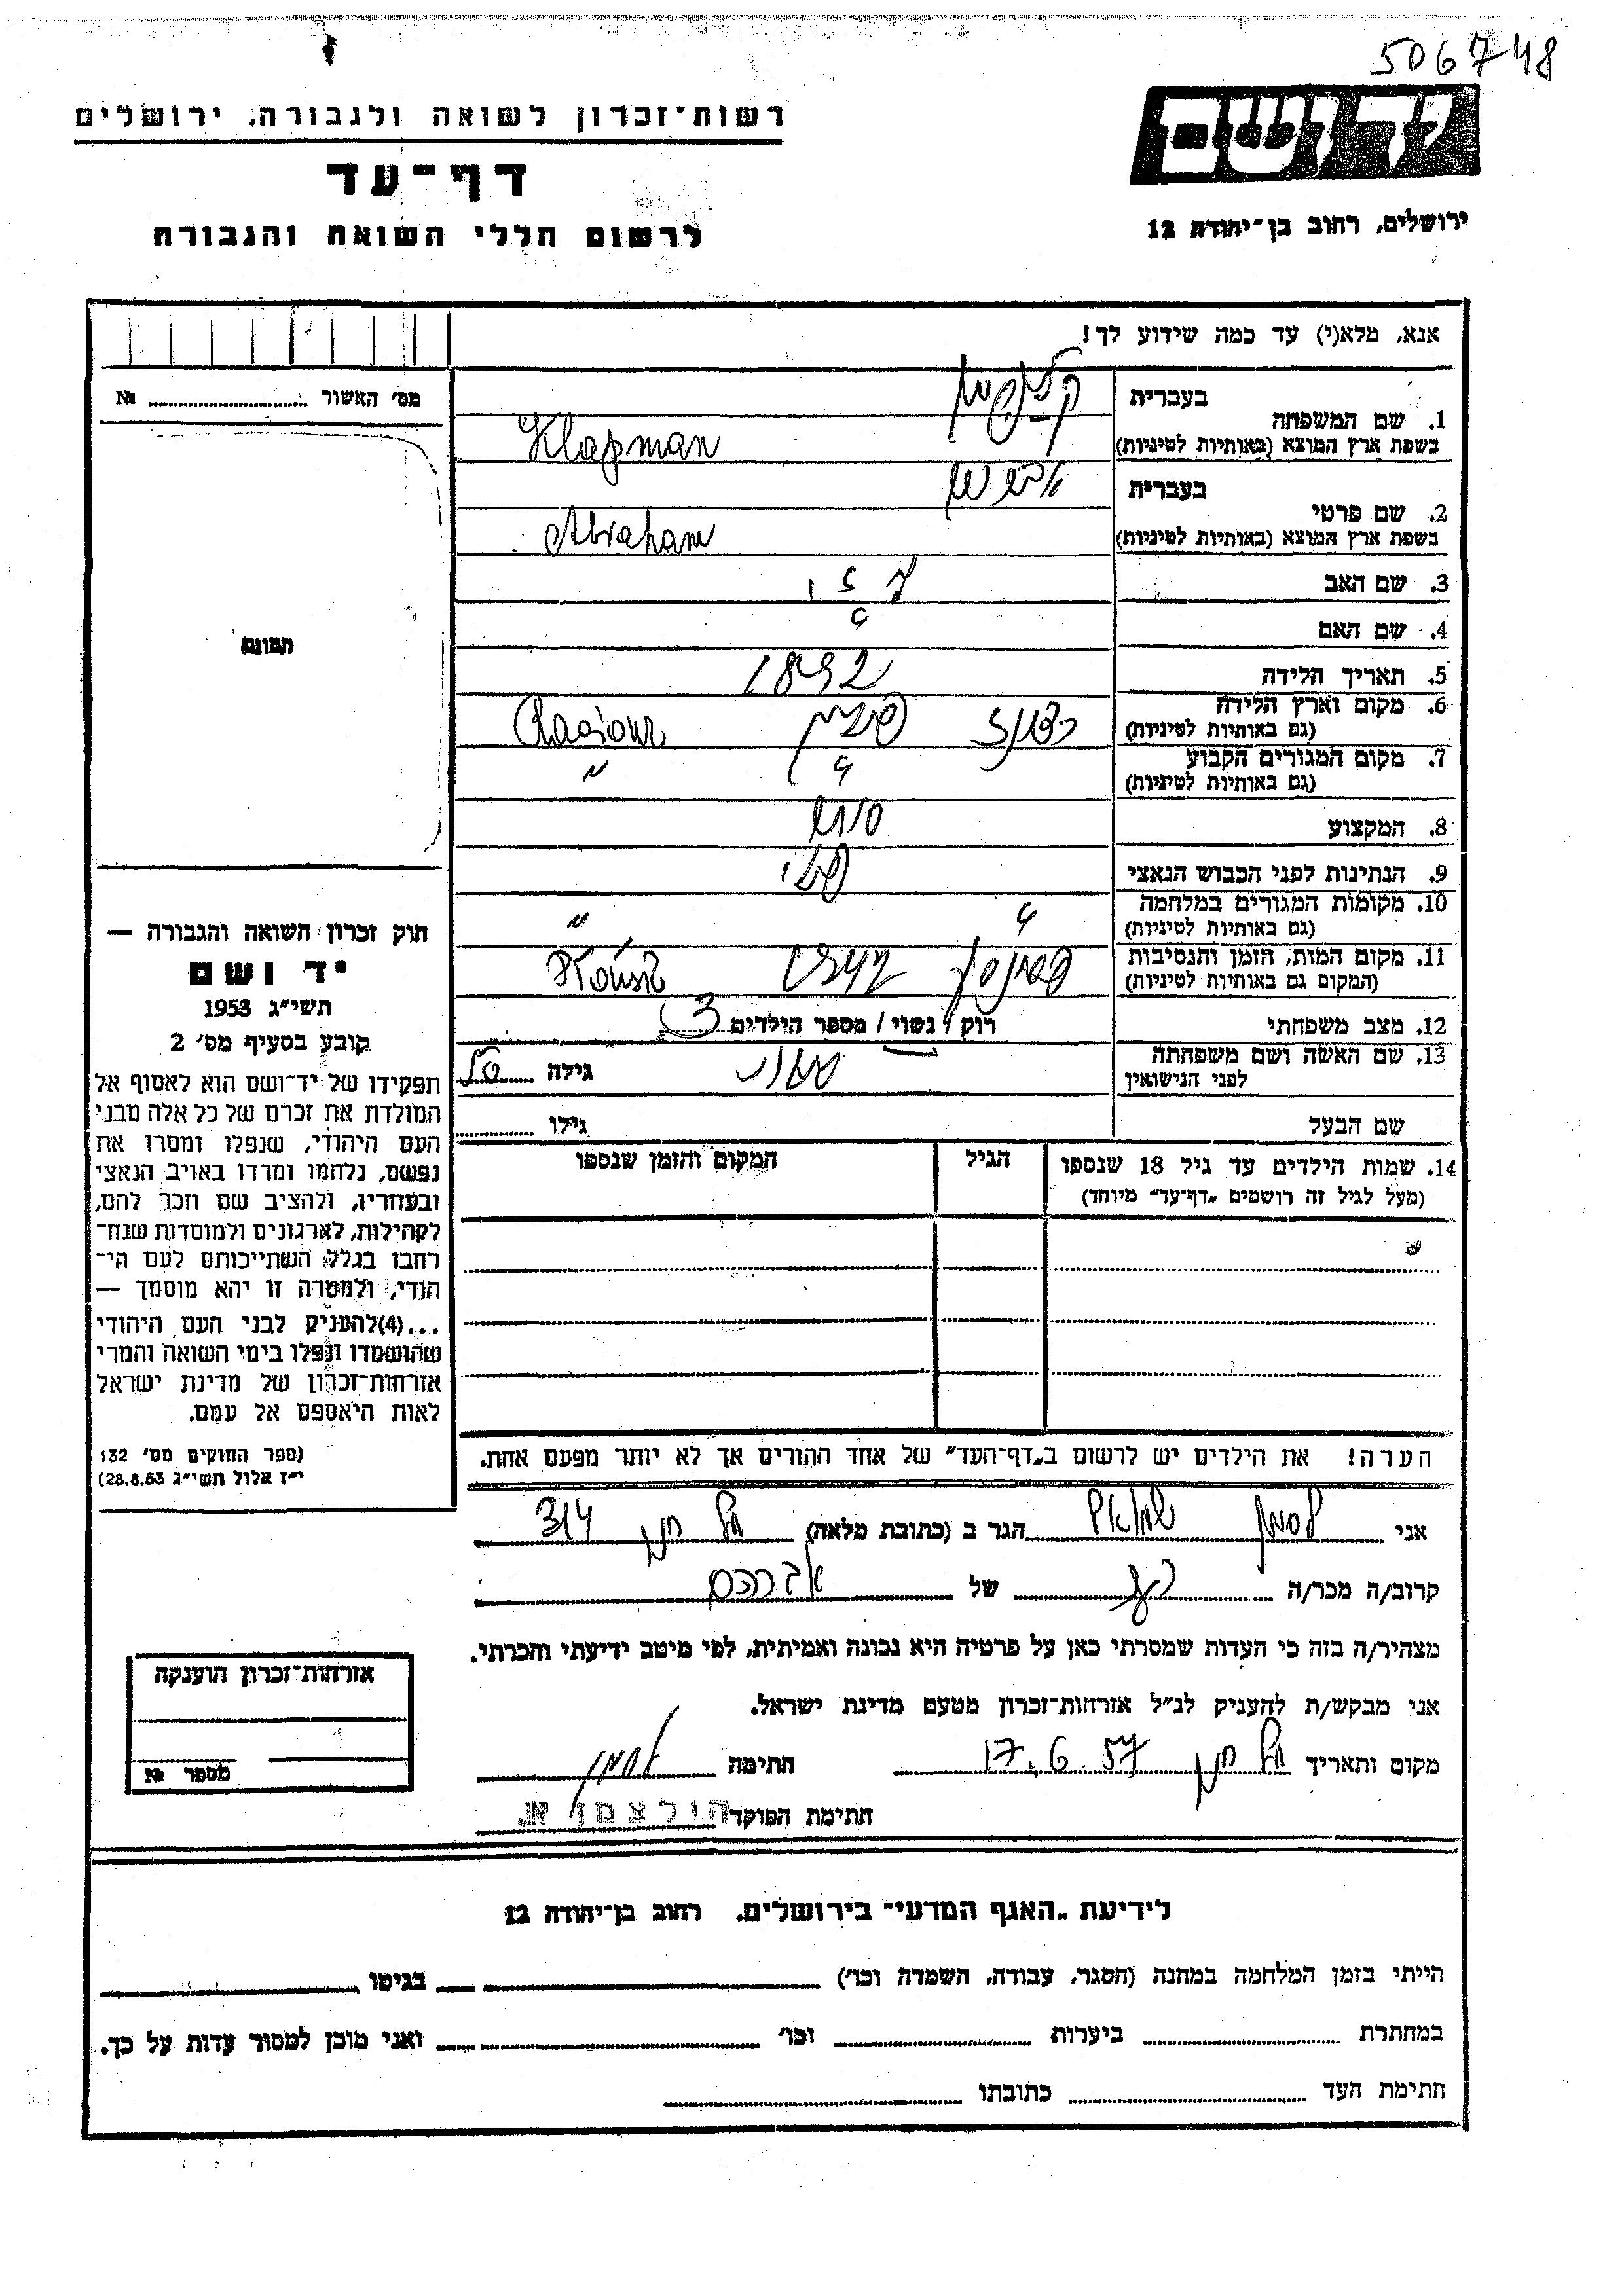 506748
רשות־זכרון לשואה ולגבורה, ירושלים
יד ושם
דף־עד
לרשום חללי השואה והגבורה
ירושלים, רחוב בן־יהודה 12
אנא, מלא(י) עד כמה שידוע לך!
מס' האשור № 
בעברית
1. שם המשפחה
בשפת ארץ המוצא (באותיות לטיניות) Klapman
בעברית
2. שם פרטי
בשפת ארץ המוצא (באותיות לטיניות) Abraham
3. שם האב
4. שם האם
תמונה
5. תאריך הלידה 1892
6. מקום וארץ הלידה פולין
(גם באותיות לטיניות)
7. מקום המגורים הקבוע " "
(גם באותיות לטיניות)
8. המקצוע סוחר
9. הנתינות לפני הכבוש הנאצי פולני
10. מקומות המגורים במלחמה " "
(גם באותיות לטיניות)
11. מקום המות, הזמן והנסיבות
(המקום גם באותיות לטיניות)
12. מצב משפחתי רוק / נשוי / מספר הילדים 3
13. שם האשה ושם משפחתה גילה
לפני הנישואין
שם הבעל גילו
14. שמות הילדים עד גיל 18 שנספו הגיל המקום והזמן שנספו
(מעל לגיל זה רושמים "דף־עד" מיוחד)
חוק זכרון השואה והגבורה —
יד ושם
תשי"ג 1953
קובע בסעיף מס' 2
תפקידו של יד־ושם הוא לאסוף אל
המולדת את זכרם של כל אלה מבני
העם היהודי, שנפלו ומסרו את
נפשם, נלחמו ומרדו באויב הנאצי
ובעוזריו, ולהציב שם וזכר להם,
לקהילות, לארגונים ולמוסדות שנח־
רבו בגלל השתייכותם לעם הי־
הודי, ולמטרה זו יהא מוסמך —
...(4) להעניק לבני העם היהודי
שהושמדו ונפלו בימי השואה והמרי
אזרחות־זכרון של מדינת ישראל
לאות היאספם אל עמם.
(ספר החוקים מס' 132
י"ז אלול תשי"ג 28.8.53)
הערה! את הילדים יש לרשום ב"דף־העד" של אחד ההורים אך לא יותר מפעם אחת.
אני הגר ב (כתובת מלאה) תל חנן
קרוב/ה מכר/ה של אברהם
מצהיר/ה בזה כי העדות שמסרתי כאן על פרטיה היא נכונה ואמיתית, לפי מיטב ידיעתי והכרתי.
אני מבקש/ת להעניק לנ"ל אזרחות־זכרון מטעם מדינת ישראל.
מקום ותאריך תל חנן 17.6.57 חתימה
חתימת הפוקד הולצמן
אזרחות־זכרון הוענקה
מספר №
לידיעת "האגף המדעי" בירושלים, רחוב בן־יהודה 12
הייתי בזמן המלחמה במחנה (הסגר, עבודה, השמדה וכו') בגיטו
במחתרת ביערות וכו' ואני מוכן למסור עדות על כך.
חתימת העד כתובתו